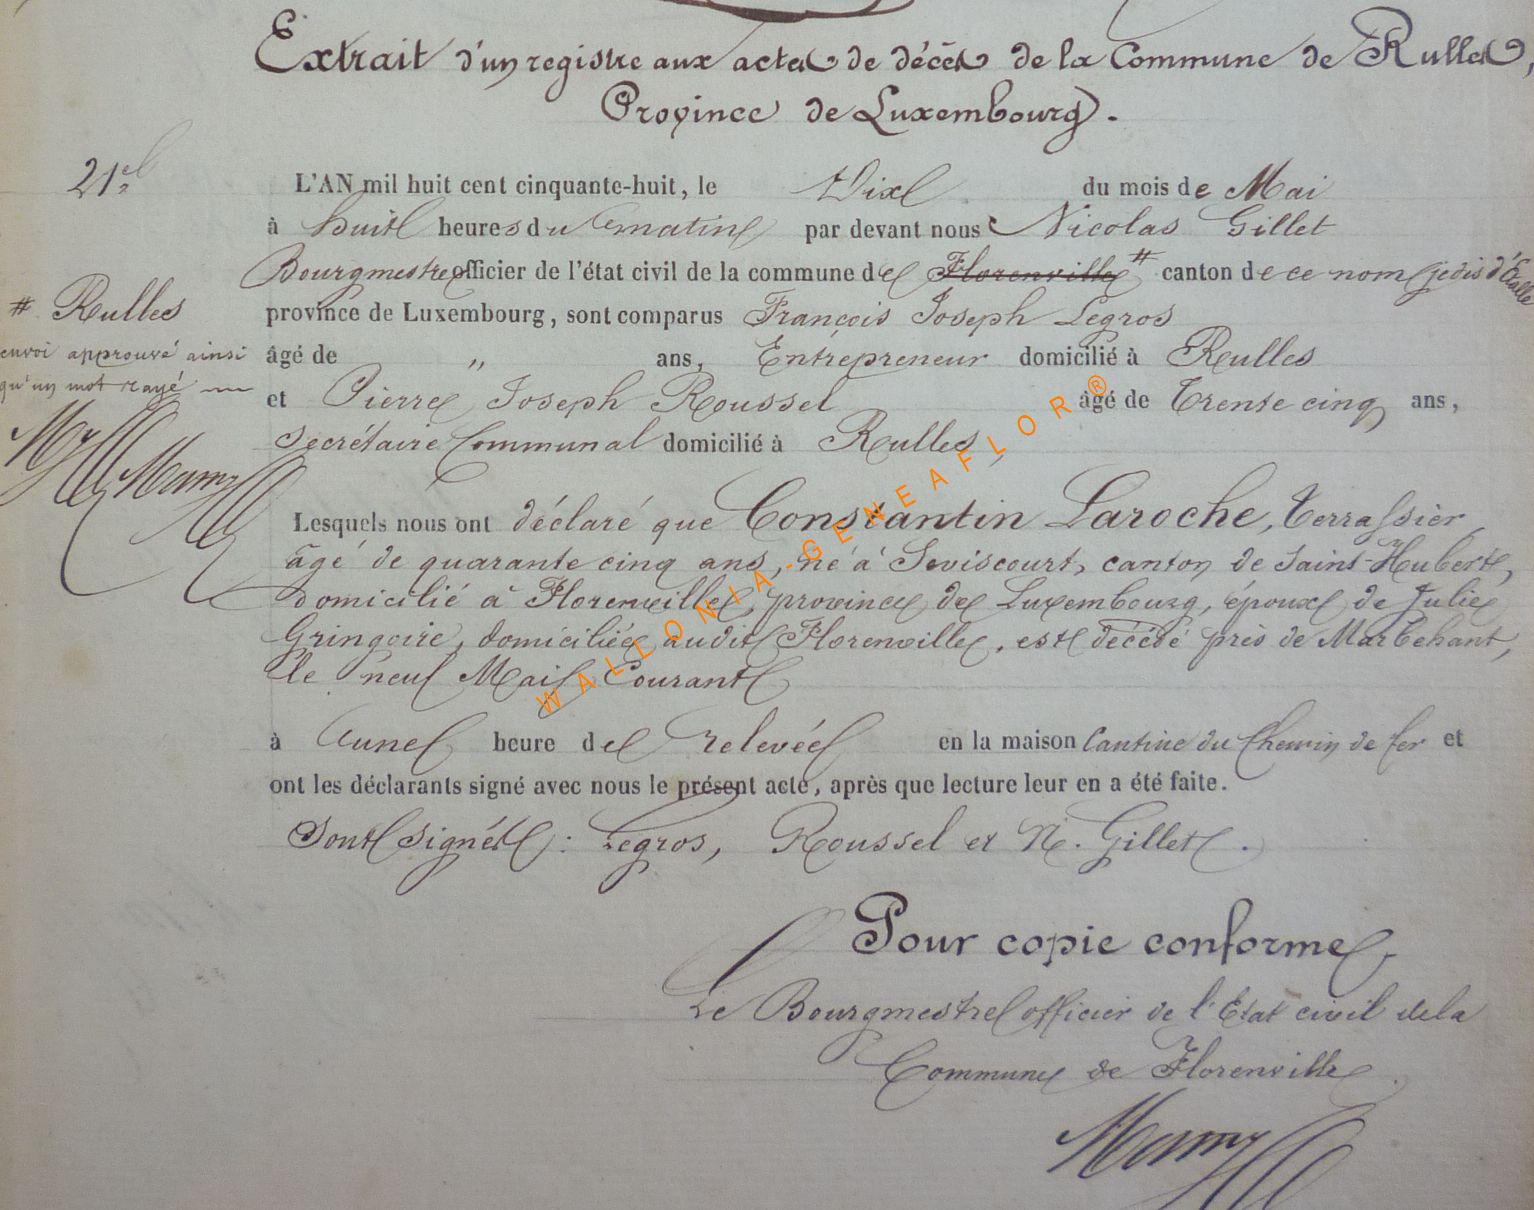 Extrait d'un registre aux actes de décès de la Commune de Rulles,
Province de Luxembourg.
21e
L'AN mil huit cent cinquante-huit, le Dix du mois de Mai
à huit heures du matin par devant nous Nicolas Gillet
Bourgmestre officier de l'état civil de la commune de Florenville # canton de ce nom je dis d'Étalle
# Rulles
province de Luxembourg, sont comparus François Joseph Legros
envoi approuvé ainsi
âgé de " ans, Entrepreneur domicilié à Rulles
qu'un mot rayé
et Pierre Joseph Roussel âgé de Trente cinq ans,
Secrétaire Communal domicilié à Rulles,
Lesquels nous ont déclaré que Constantin Laroche, Terrassier,
âgé de quarante cinq ans, né à Seviscourt, canton de Saint-Hubert,
domicilié à Florenville, province de Luxembourg, époux de Julie
Gringoire, domiciliée audit Florenville, est décédé près de Marbehant,
le neuf Mai Courant
à une heure de relevée en la maison Cantine du Chemin de fer et
ont les déclarants signé avec nous le présent acte, après que lecture leur en a été faite.
Sont signés : Legros, Roussel et N. Gillet.
Pour copie conforme,
Le Bourgmestre officier de l'Etat civil de la
Commune de Florenville
WALLONIA-GENEAFLOR®